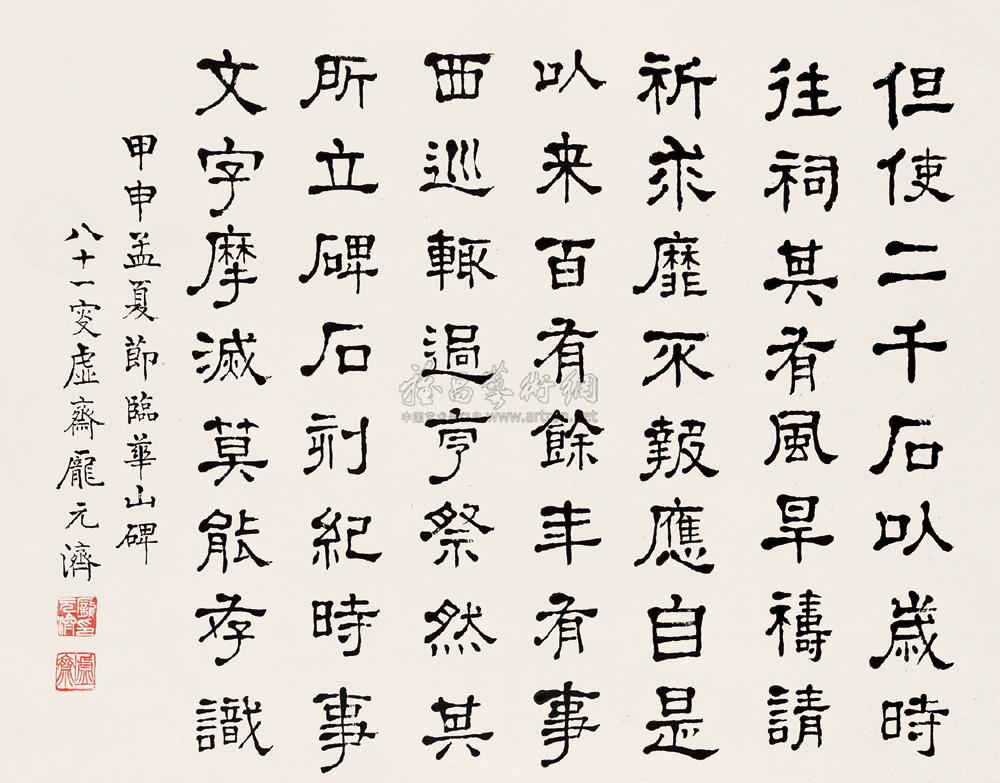 但使二千石以歲時
往祠其有風旱禱請
祈求靡不報應自是
以来百有餘年有事
西巡輒過亨祭然其
所立碑石刻紀時事
文字摩滅莫能存識
甲申孟夏節臨華山碑
八十一叟虛齋龐元濟
龐元濟印
虛齋
中国艺术品网 www.artxun.net